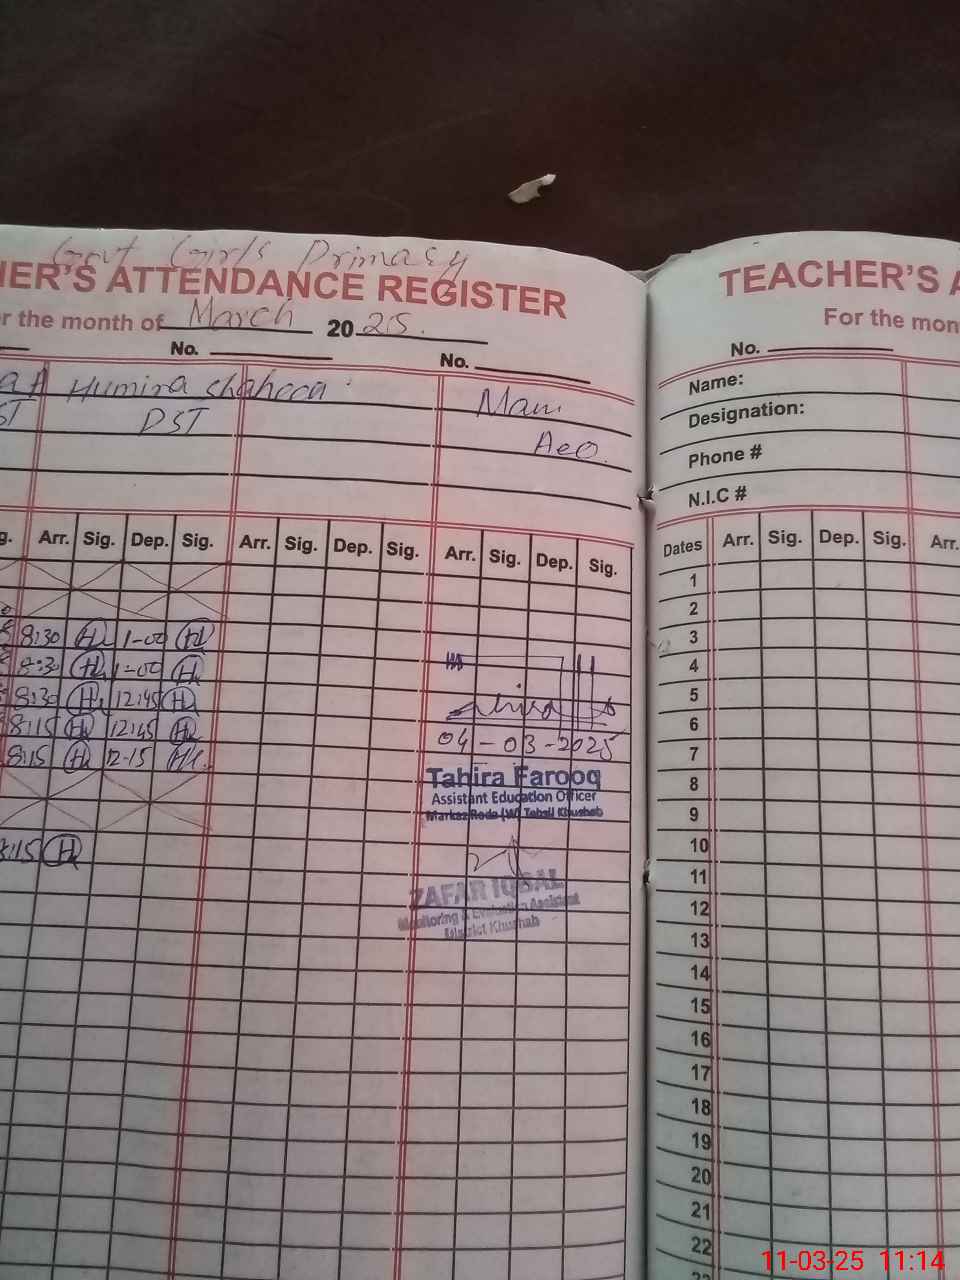 Govt Girls Primary
HER'S ATTENDANCE REGISTER
r the month of March 2025.
No. No.
Humira Shaheen Mam
ST DST AeO.
g. Arr. Sig. Dep. Sig. Arr. Sig. Dep. Sig. Arr. Sig. Dep. Sig.
8:30 H 1-00 H
8:30 H 1-00 H
8:30 H 12:45 H
8:15 H 12:45 H
8:15 H 12-15 H
8:15 H
04-03-2025
Tahira Farooq
Assistant Education Officer
Markaz Roda (W) Tehsil Khushab
ZAFAR IQBAL
Monitoring & Evaluation Assistant
District Khushab
TEACHER'S A
For the mon
No.
Name:
Designation:
Phone #
N.I.C #
Dates Arr. Sig. Dep. Sig. Arr.
1
2
3
4
5
6
7
8
9
10
11
12
13
14
15
16
17
18
19
20
21
22
23
11-03-25 11:14